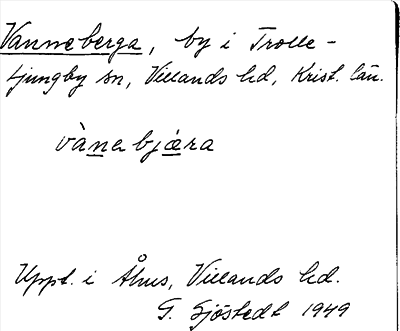 Vanneberga, by i Trolle-
Ljungby sn, Villands hd, Krist. län.
vànebjæra
Uppt. i Åhus, Villands hd.
G. Sjöstedt 1949